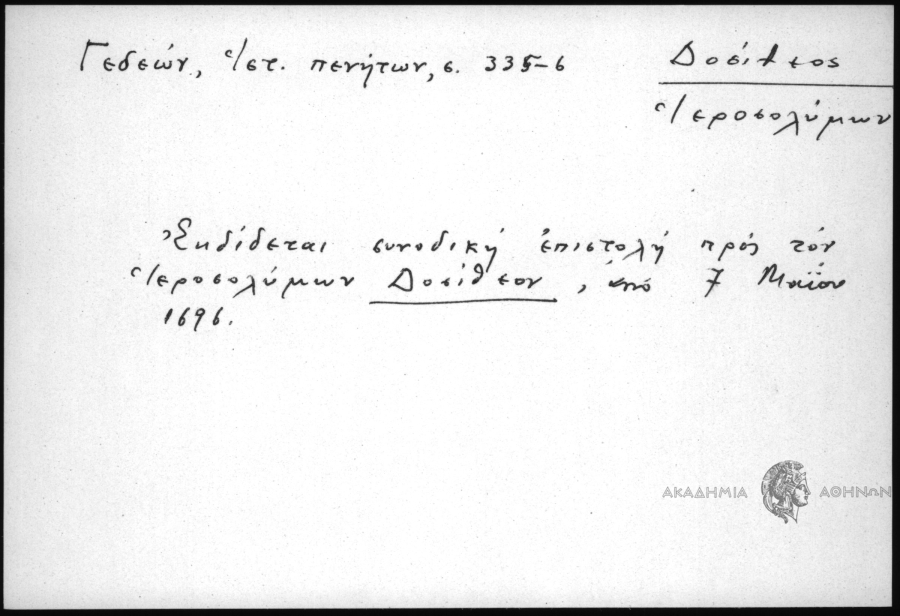 Γεδεών, Ἱστ. πενήτων, σ. 335-6
Δοσίθεος
Ἱεροσολύμων
Ἐκδίδεται συνοδική ἐπιστολή πρός τόν
Ἱεροσολύμων Δοσίθεον, ἀπό 7 Μαΐου
1696.
ΑΚΑΔΗΜΙΑ ΑΘΗΝΩΝ